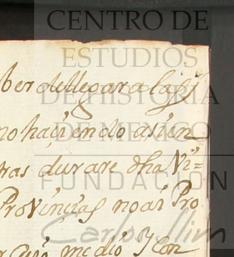 CENTRO DE
ESTUDIOS
DE HISTORIA
DE MEXICO
FUNDACIÓN
Carlos Slim
ber de llegar a las
no haçiendo asi en
tras durare dha Vi=
Provincias no ai Pro
medio y con